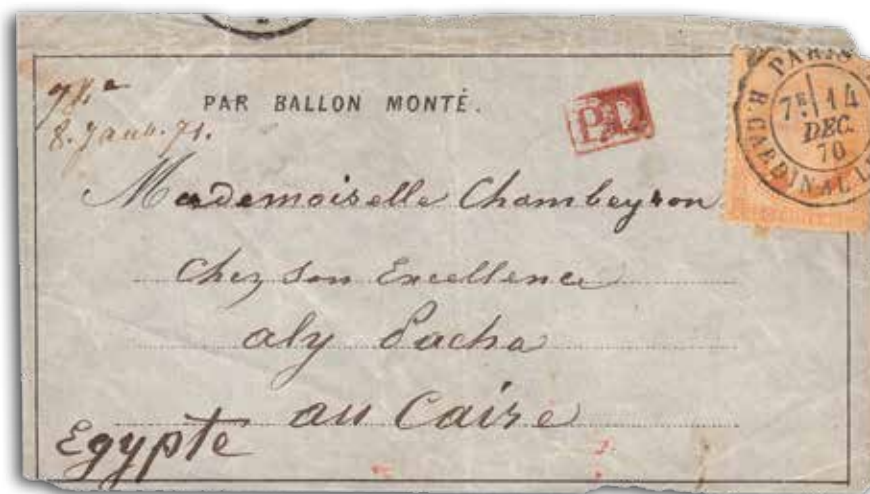 8. Janv. 71.
PAR BALLON MONTÉ.
P.D.
PARIS
7E 14
DEC.
70
R. CARDINAL LE
Mademoiselle Chambeyron
Chez Son Excellence
aly Pacha
au Caire
Egypte